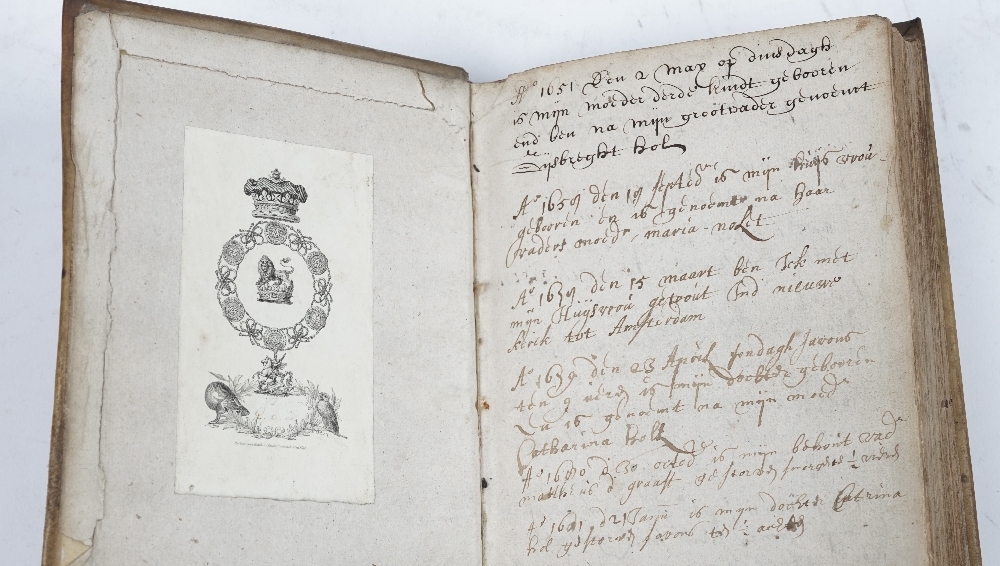 Ao 1651 Den 2 may op dinsdagh
is mijn moeder derde kindt gebooren
end ben na mijn grootvader genoemt
Gijsbreght hol
Ao 1659 den 19 septedr is mijn huijs vrou
gebooren en is genoemt na haar
vaders moedr maria nolet
Ao 1689 den 15 maart ben Ick met
mijn Huijsvrou getrout Ind nieuwe
kerck tot Amsterdam
Ao 1639 den 23 April sondagh savons
ten 9 uren is mijn dochter gebooren
En is genoemt na mijn moedr
Catharina hol
Ao 1690 d 30 octob is mijn behout vadr
matthius d graaff gestorven smorgens ½ uren
Ao 1691 is mijn dochter Catrina
hol gestorven savons ten ½